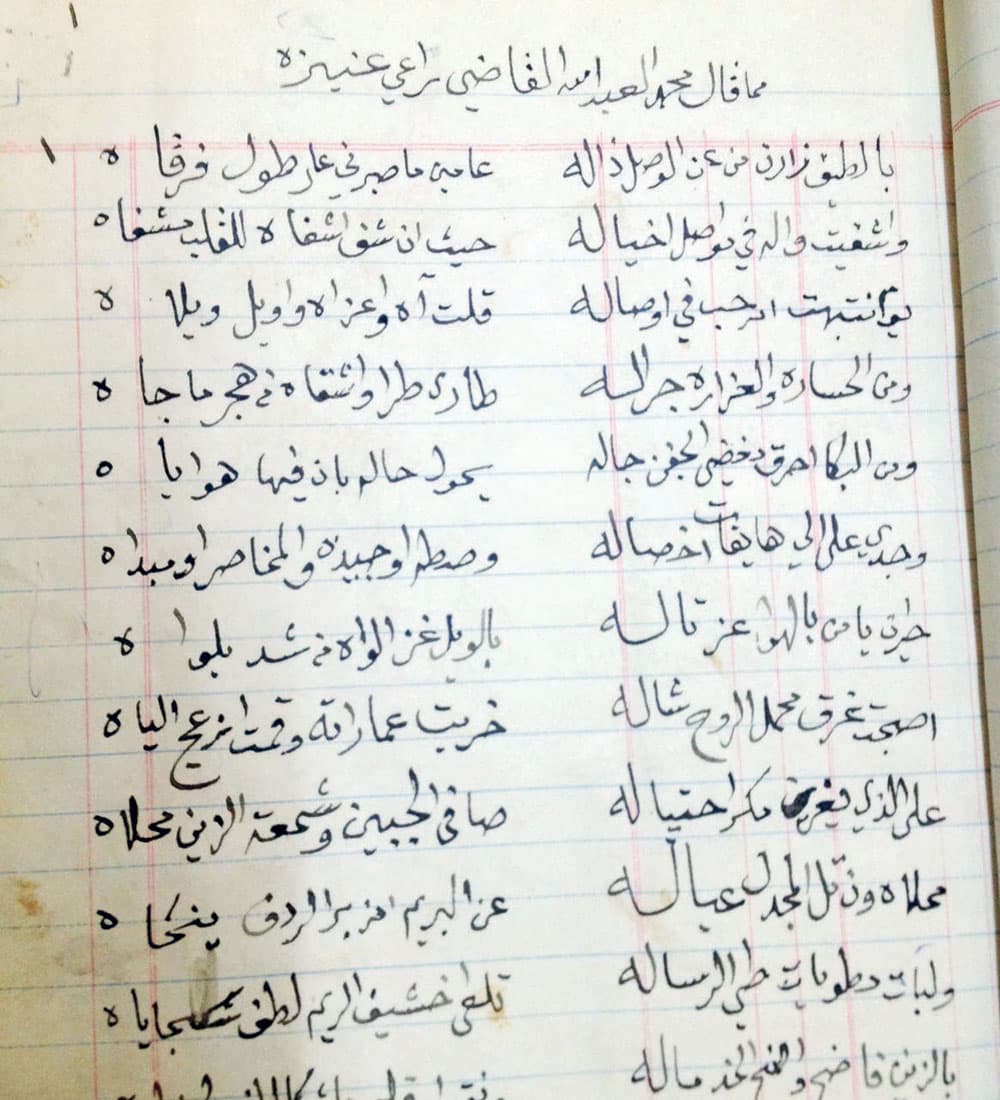 مما قال محمد العبدالله القاضي راعي عنيزه
١ بالطيف زارن من عن الوصل ذاله عامين ما صبرني على طول فرقاه
واشفيت واله في تواصل اخياله حيث ان شفى اشفاه للقلب مشفاه
يوم انتبهت ارحب في اوصاله قلت آه واعزاه واويل ويلاه
ومن الحساره والعزاره جراله طارى طرا واشقاه في هجر ماجاه
ومن البكا احرق دخضي الجفن جاله يحول حاله باذ فيها هواياه
وجدي على الي هايفات اخصاله وصطه اوجيده والمخاصر او مبداه
حيران يا من بالهوا عز تاله بالويل عز الواه من شد بلواه
اصبحت غرق محمل الروح شاله خربت عماراته وقمت ازعج الياه
على الذي مكر احتياله صافي الجبين وشمعة الزين محلاه
محلاه ون تل المجدل عباله عن البريم امزبر الردف ينحاه
ولبات مطويات طي الرساله تلعى خشيف الريم لطف سجاياه
بالزين فاضح والخد ماله